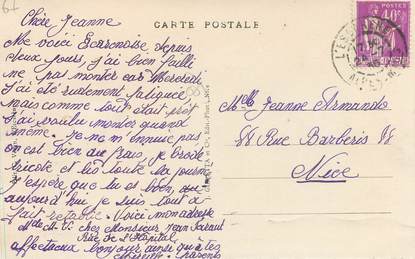 CARTE POSTALE
Chère Jeanne
Me voici Escarenoise depuis
deux jours, j'ai bien failli
ne pas monter car Mercredi
j'ai été rudement fatiguée
mais comme tout était prêt
j'ai voulu monter quand
même. Je ne m'ennuie pas
on est bien au frais je brode
tricote et lis toute la journée
J'espère que tu es bien, au
aujourd'hui je suis tout à
fait retablie. Voici mon adresse
Mlle M. V. chez Monsieur Jean
Rue de l'Hôpital
affectueux bonjour ainsi qu'à tes
parents
POSTES
40c
L'ESCARENE
Mlle Jeanne Armando
88 Rue Barberis 88
Nice